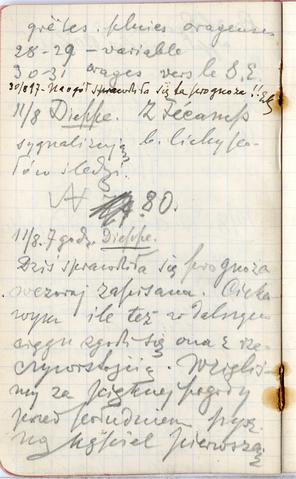 grêles. pluies orageuses
28-29 - variable
30-31 orages vers le S.E.
30/8 17 - Naogół sprawdziła się ta prognoza !!
11/8 Dieppe. Z Fécamp
sygnalizują b. liche po-
łów śledzi.
80.
11/8. 7 godz. Dieppe.
Dziś sprawdziła się prognoza
wczoraj zapisana. Cieka-
wym ile też w dalszym
ciągu zgodzi się ona z rze-
czywistością. Wzięliś-
my za pięknej pogody
przed południem
na kąpiel pierwszą